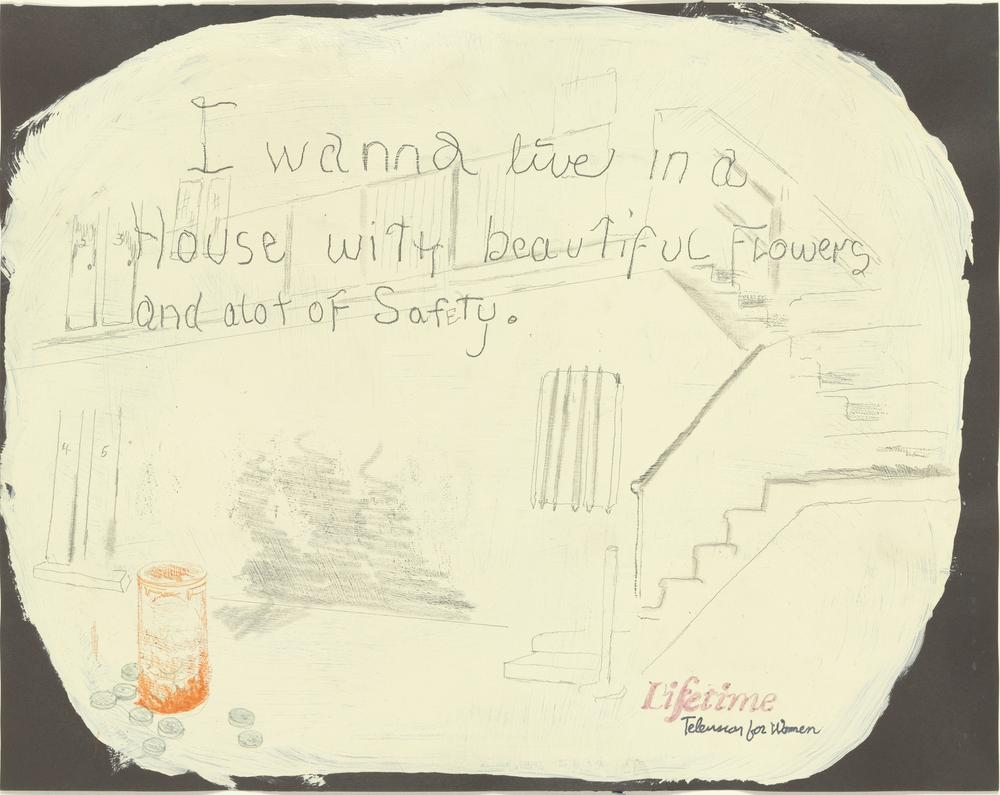 I wanna live in a
House with beautiful Flowers
and alot of Safety.
2 3
4 5
Lifetime
Television for Women